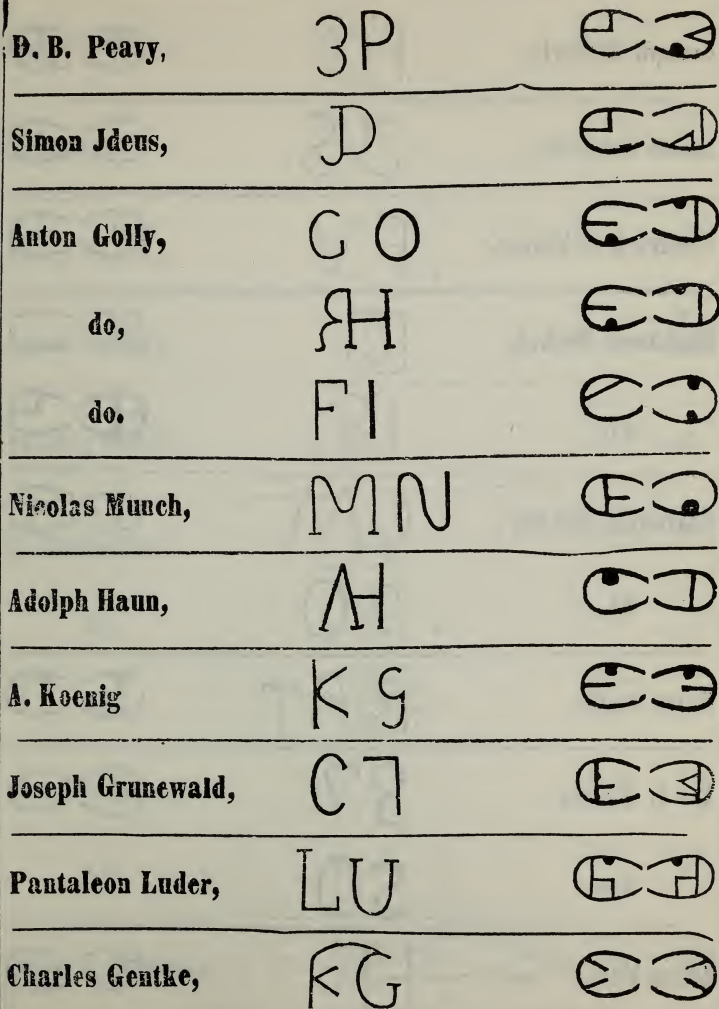 D. B. Peavy, 3P
Simon Jdeus, JD
Anton Golly, G O
do, RH
do. F I
Nicolas Munch, M N
Adolph Haun, AH
A. Koenig K G
Joseph Grunewald, C
Pantaleon Luder, L U
Charles Gentke, K G